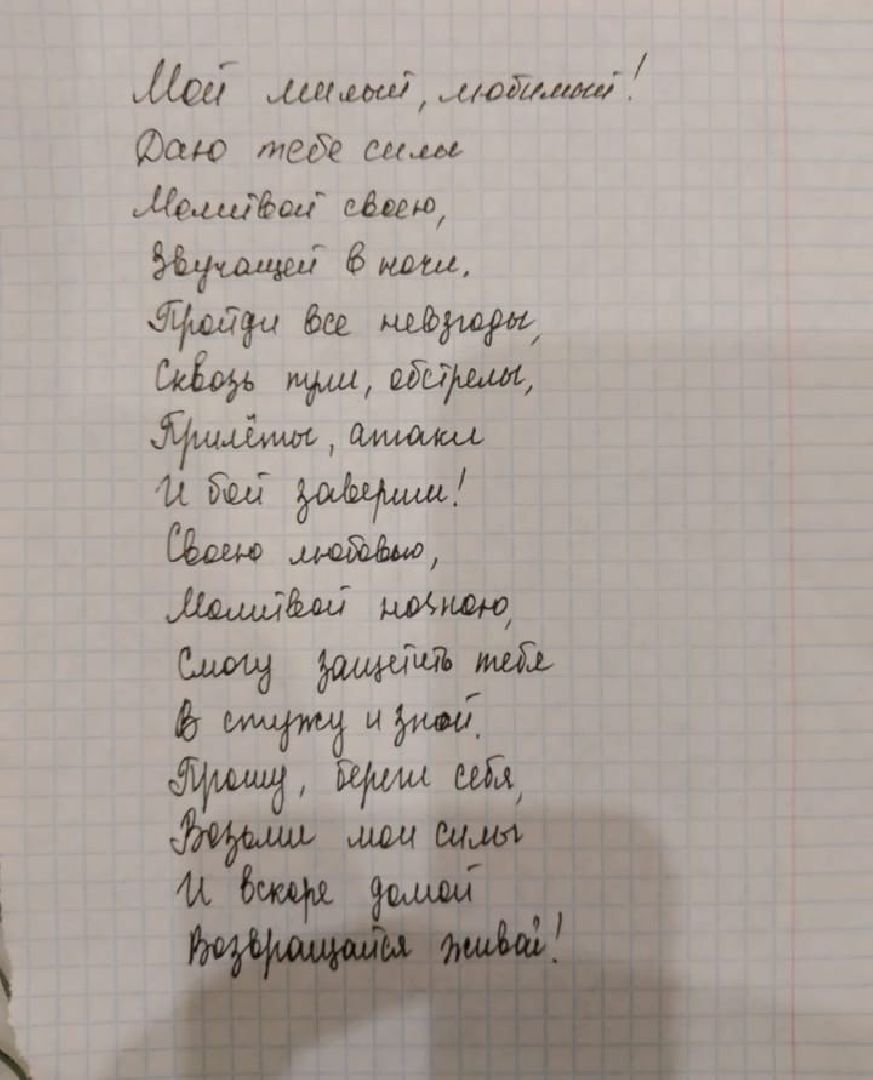 Мой милый, любимый!
Даю тебе силы
Молитвой своею,
Звучащей в ночи.
Пройди все невзгоды,
Сквозь пули, обстрелы,
Прилёты, атаки
И бой заверши!
Своею любовью,
Молитвой ночною,
Смогу защитить тебя
В стужу и зной.
Прошу, береги себя,
Возьми мои силы
И вскоре домой
Возвращайся живой!